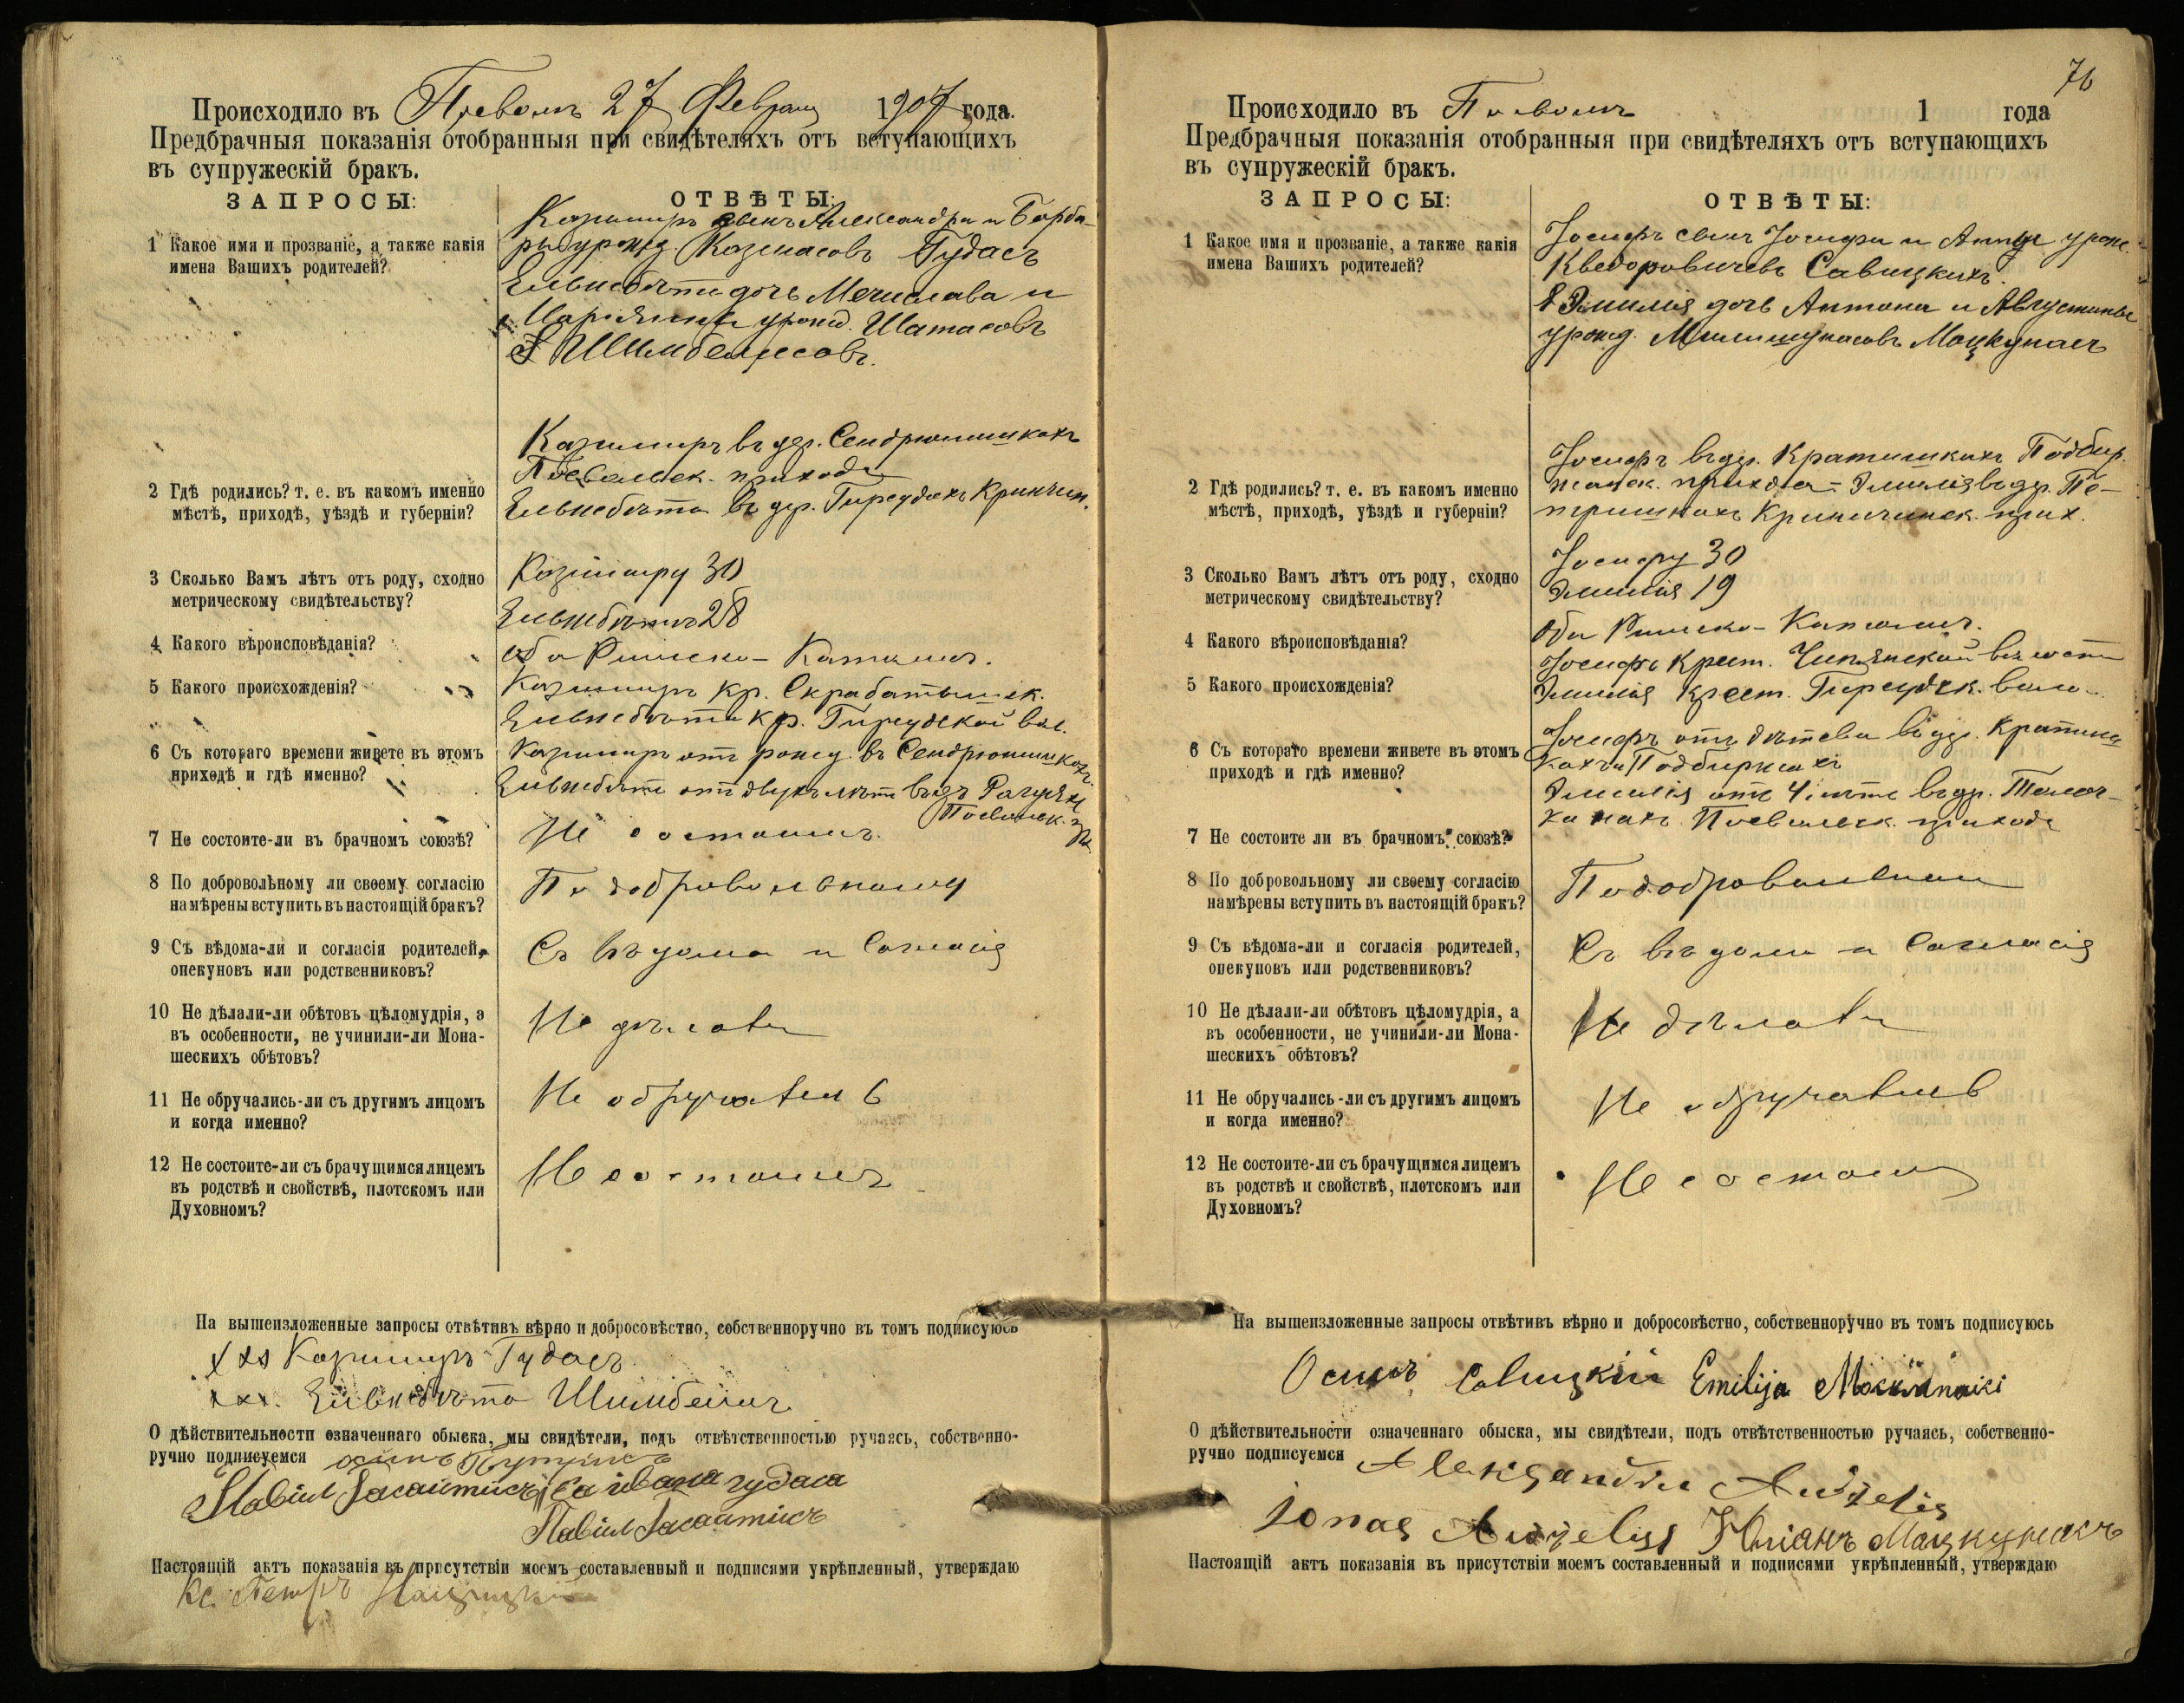 Происходило въ Посволь 27 Февраля 1907 года.
Предбрачныя показанія отобранныя при свидѣтеляхъ отъ вступающихъ
въ супружескій бракъ.
ЗАПРОСЫ:
ОТВѢТЫ:
1 Какое имя и прозваніе, а также какія
имена Вашихъ родителей?
Казимиръ сынъ Александра и Барба-
ры урожд. Гудасъ
Елисавета дочь Мечислава и
Маріанны урожд. Шатасовъ
2 Гдѣ родились? т. е. въ какомъ именно
мѣстѣ, приходѣ, уѣздѣ и губерніи?
Казимиръ въ дер. Сендрюнишкахъ
Посвольск. прихода
въ дер. Гиреудахъ Кринчин.
3 Сколько Вамъ лѣтъ отъ роду, сходно
метрическому свидѣтельству?
Казимиру 30
28
4 Какого вѣроисповѣданія?
оба Римско-Катол.
5 Какого происхожденія?
Казимиръ кр. Скрабатышек.
кр. Гиреудской вол.
6 Съ котораго времени живете въ этомъ
приходѣ и гдѣ именно?
Казимиръ отъ рожд. въ Сендрюнишкахъ
отъ двухъ лѣтъ въ
Посвольск.
7 Не состоите-ли въ брачномъ союзѣ?
Не состоимъ.
8 По добровольному ли своему согласію
намѣрены вступить въ настоящій бракъ?
По добровольному
9 Съ вѣдома-ли и согласія родителей,
опекуновъ или родственниковъ?
Съ вѣдома и согласія
10 Не дѣлали-ли обѣтовъ цѣломудрія, а
въ особенности, не учинили-ли Мона-
шескихъ обѣтовъ?
Не дѣлали
11 Не обручались-ли съ другимъ лицомъ
и когда именно?
Не обручались
12 Не состоите-ли съ брачущимся лицемъ
въ родствѣ и свойствѣ, плотскомъ или
Духовномъ?
Не состоимъ
На вышеизложенные запросы отвѣтивъ вѣрно и добросовѣстно, собственноручно въ томъ подписуюсь
xxx Казимиръ Гудасъ
xxx.
О дѣйствительности означеннаго обыска, мы свидѣтели, подъ отвѣтственностью ручаясь, собственно-
ручно подписуемся
за ивана гудаса
Настоящій актъ показанія въ присутствіи моемъ составленный и подписями укрѣпленный, утверждаю
Кс. Петръ
76
Происходило въ Посволь 1 года
Предбрачныя показанія отобранныя при свидѣтеляхъ отъ вступающихъ
въ супружескій бракъ.
ЗАПРОСЫ:
ОТВѢТЫ:
1 Какое имя и прозваніе, а также какія
имена Вашихъ родителей?
Іосифъ сынъ Іосифа и Анны урож.
Кведоровичевъ Савицкихъ.
Эмилія дочь Антона и Августины
урожд. Мацкунасъ
2 Гдѣ родились? т. е. въ какомъ именно
мѣстѣ, приходѣ, уѣздѣ и губерніи?
Іосифъ въ дер. Кратишкахъ Подбир-
жанск. прихода - Эмилія въ дер. Пе-
тришкахъ Криничинск. прих.
3 Сколько Вамъ лѣтъ отъ роду, сходно
метрическому свидѣтельству?
Іосифу 30
Эмилія 19
4 Какого вѣроисповѣданія?
Оба Римско-Католич.
5 Какого происхожденія?
Іосифъ Крест. волости
Эмилія крест. Гиреудск. воло.
6 Съ котораго времени живете въ этомъ
приходѣ и гдѣ именно?
Іосифъ отъ дѣтства въ дер. Кратиш-
кахъ Подбиржахъ
Эмилія отъ 4 лѣтъ въ др.
Посвольск. прихода
7 Не состоите ли въ брачномъ союзѣ?
8 По добровольному ли своему согласію
намѣрены вступить въ настоящій бракъ?
По добровольному
9 Съ вѣдома-ли и согласія родителей,
опекуновъ или родственниковъ?
Съ вѣдома и согласія
10 Не дѣлали-ли обѣтовъ цѣломудрія, а
въ особенности, не учинили-ли Мона-
шескихъ обѣтовъ?
Не дѣлали
11 Не обручались-ли съ другимъ лицомъ
и когда именно?
Не обручались
12 Не состоите-ли съ брачущимся лицемъ
въ родствѣ и свойствѣ, плотскомъ или
Духовномъ?
Не состоимъ
На вышеизложенные запросы отвѣтивъ вѣрно и добросовѣстно, собственноручно въ томъ подписуюсь
Осипъ Савицкій Emilija
О дѣйствительности означеннаго обыска, мы свидѣтели, подъ отвѣтственностью ручаясь, собственно-
ручно подписуемся
Jonas Юліанъ Мацкунасъ
Настоящій актъ показанія въ присутствіи моемъ составленный и подписями укрѣпленный, утверждаю